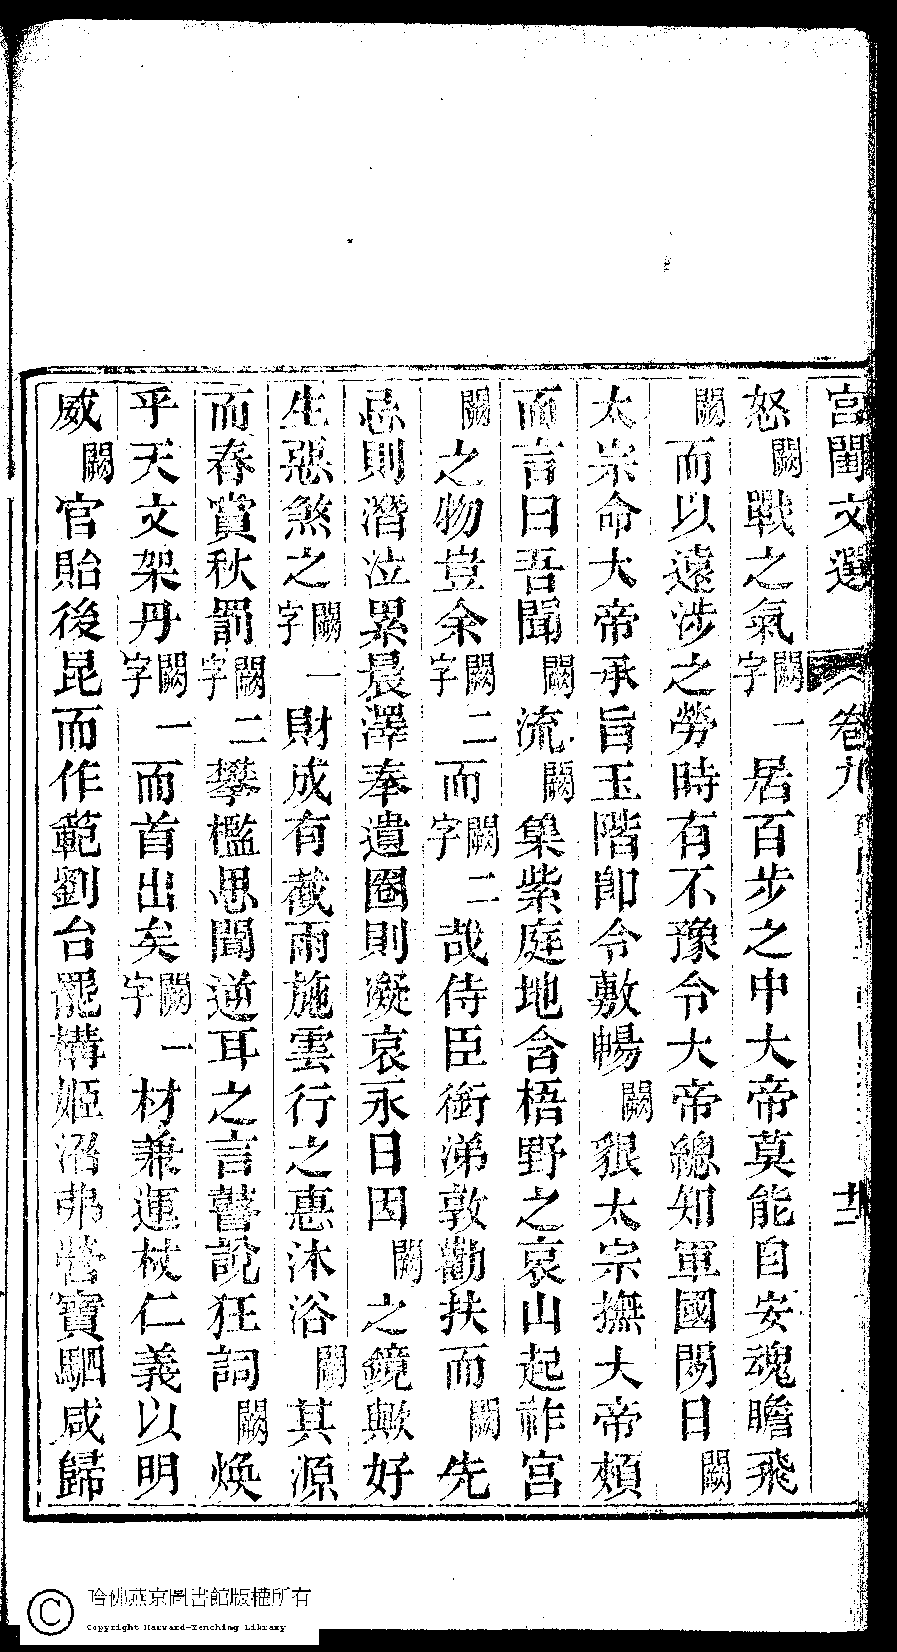 宮閨文選 卷九 十二
怒闕戰之氣闕一字居百步之中大帝莫能自安魂瞻飛
闕而以遠涉之勞時有不豫令大帝總知軍國閱日闕
太宗命大帝承旨玉階卽令敷暢闕狠太宗撫大帝頰
而言曰吾聞闕流闕集紫庭地含梧野之哀山起祚宮
闕之物豈余闕二字而闕二字哉侍臣銜涕敦勸扶而闕先
忌則潛泣累晨澤奉遺圈則凝哀永日因闕之鏡歟好
生惡煞之闕一字財成有截雨施雲行之惠沐浴闕其源
而春賞秋罰闕二字攀檻思聞逆耳之言瞽說狂詞闕煥
乎天文架丹闕一字而首出矣闕一字材兼運杖仁義以明
威闕官貽後昆而作範劉台罷構姬沼弗營寶駟咸歸
哈佛燕京圖書館版權所有
Copyright Harvard-Yenching Library